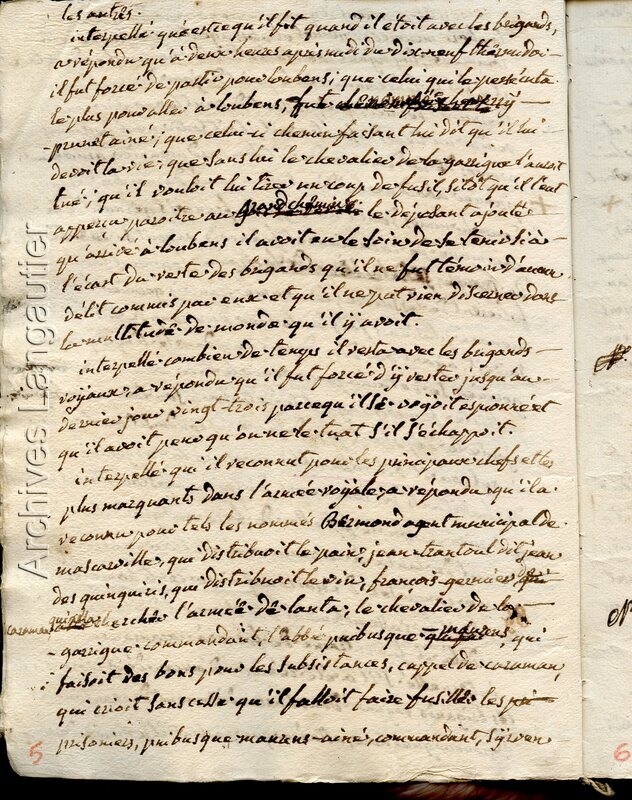 les autres.
interpellé qu'est ce qu'il fit quand il etoit avec les brigands,
a répondu qu'à deux heures après midi du dix neuf thermidor
il fut forcé de partir pour loubens; que celui qui le persécuta
le plus pour aller à loubens, fut
prunet ainé; que celui-ci chemin faisant lui dit qu'il lui
devoit la vie, que sans lui le chevalier de la garrigue l'auroit
tué; qu'il vouloit lui tirer un coup de fusil, sitôt qu'il l'eut
apperçu paroitre au grand chemin. le déposant ajoute
qu'arrivé à loubens il avoit eu le soin de se tenir à
l'écart du reste des brigands qu'il ne fut témoin d'aucun
délit commis par eux et qu'il ne put rien discerner dans
la multitude de monde qu'il y avoit.
interpellé combien de temps il resta avec les brigands
royaux, a répondu qu'il fut forcé d'y rester jusqu'au
dernier jour vingt-trois parcequ'il se voyoit espionné et
qu'il avoit peur qu'on ne le tuat s'il s'échappoit.
interpellé qui il reconnut pour les principaux chefs et les
plus marquants dans l'armée royale a répondu qu'il a
reconnu pour tels les nommés Bermond agent municipal de
mascarville, qui distribuoit le pain, jean trantoul dit jean
des quinquiris, qui distribuoit le vin, françois gernier
caraman l'armée de lanta, le chevalier de la
garrigue commandant, l'abbé puibusque maurens, qui
faisoit des bons pour les subsistances, cappel de caraman,
qui crioit sans cesse qu'il falloit faire fusiller les
prisoniers, puibusque maurens ainé, commandant, syrven
Archives Langautier
5
6